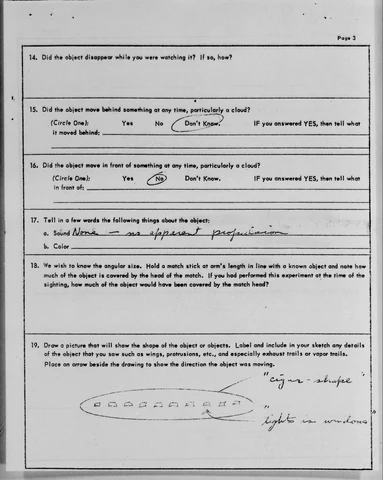 Page 3
14. Did the object disappear while you were watching it? If so, how?
15. Did the object move behind something at any time, particularly a cloud?
(Circle One): Yes No Don't Know. IF you answered YES, then tell what
it moved behind:
16. Did the object move in front of something at any time, particularly a cloud?
(Circle One): Yes No Don't Know. IF you answered YES, then tell what
in front of:
17. Tell in a few words the following things about the object:
a. Sound None — no apparent propulsion
b. Color
18. We wish to know the angular size. Hold a match stick at arm's length in line with a known object and note how
much of the object is covered by the head of the match. If you had performed this experiment at the time of the
sighting, how much of the object would have been covered by the match head?
19. Draw a picture that will show the shape of the object or objects. Label and include in your sketch any details
of the object that you saw such as wings, protrusions, etc., and especially exhaust trails or vapor trails.
Place an arrow beside the drawing to show the direction the object was moving.
"cigar-shape"
lights is windows